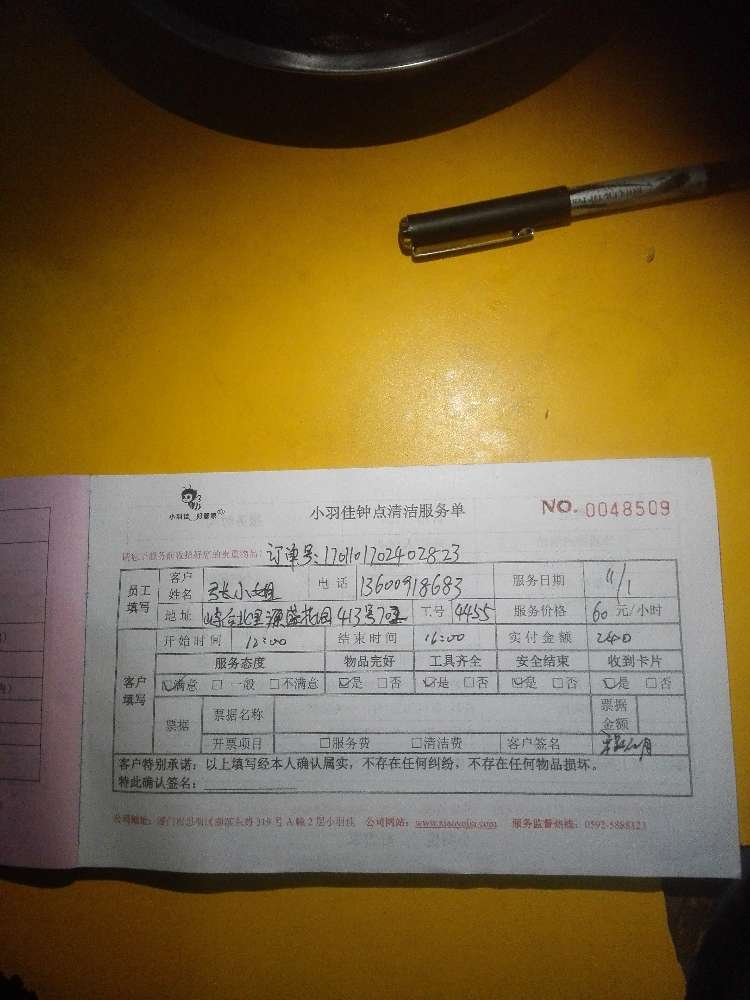 小羽佳 好管家
小羽佳钟点清洁服务单
NO. 0048509
订单号:1701101702402823
员工填写 客户姓名 张小姐 电话 13600918683 服务日期 11/1
地址 413号 工号 4455 服务价格 60 元/小时
客户填写 开始时间 12:00 结束时间 16:00 实付金额 240
服务态度 物品完好 工具齐全 安全结束 收到卡片
☑满意 □一般 □不满意 ☑是 □否 ☑是 □否 ☑是 □否 ☑是 □否
票据 票据名称 票据金额
开票项目 □服务费 □清洁费 客户签名
客户特别承诺:以上填写经本人确认属实,不存在任何纠纷,不存在任何物品损坏。
特此确认签名:
公司地址: 319号A幢2层小羽佳 公司网站: 服务监督热线: